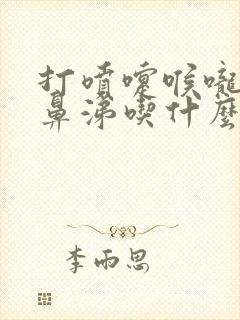 打噴嚏喉嚨
鼻涕喫什麼
李雨思